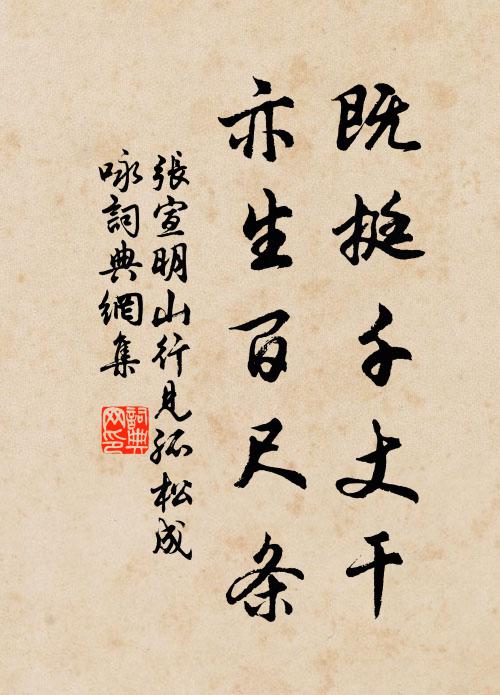 既挺千丈干
亦生百尺条
張宣明山行見孤松成
咏詞典網集
詞典
网印